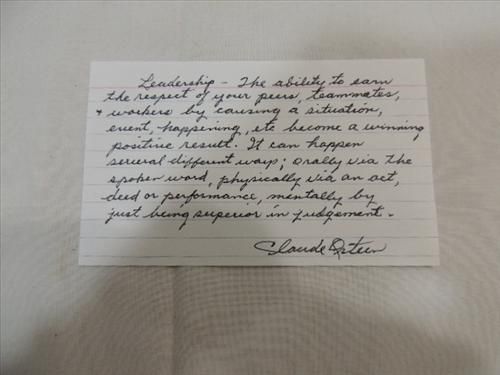 Leadership - The ability to earn
the respect of your peers, teammates,
+ workers by causing a situation,
event, happening, etc become a winning
positive result. It can happen
several different ways; orally via the
spoken word, physically via an act,
deed or performance, mentally by
just being superior in judgement.
Claude Osteen